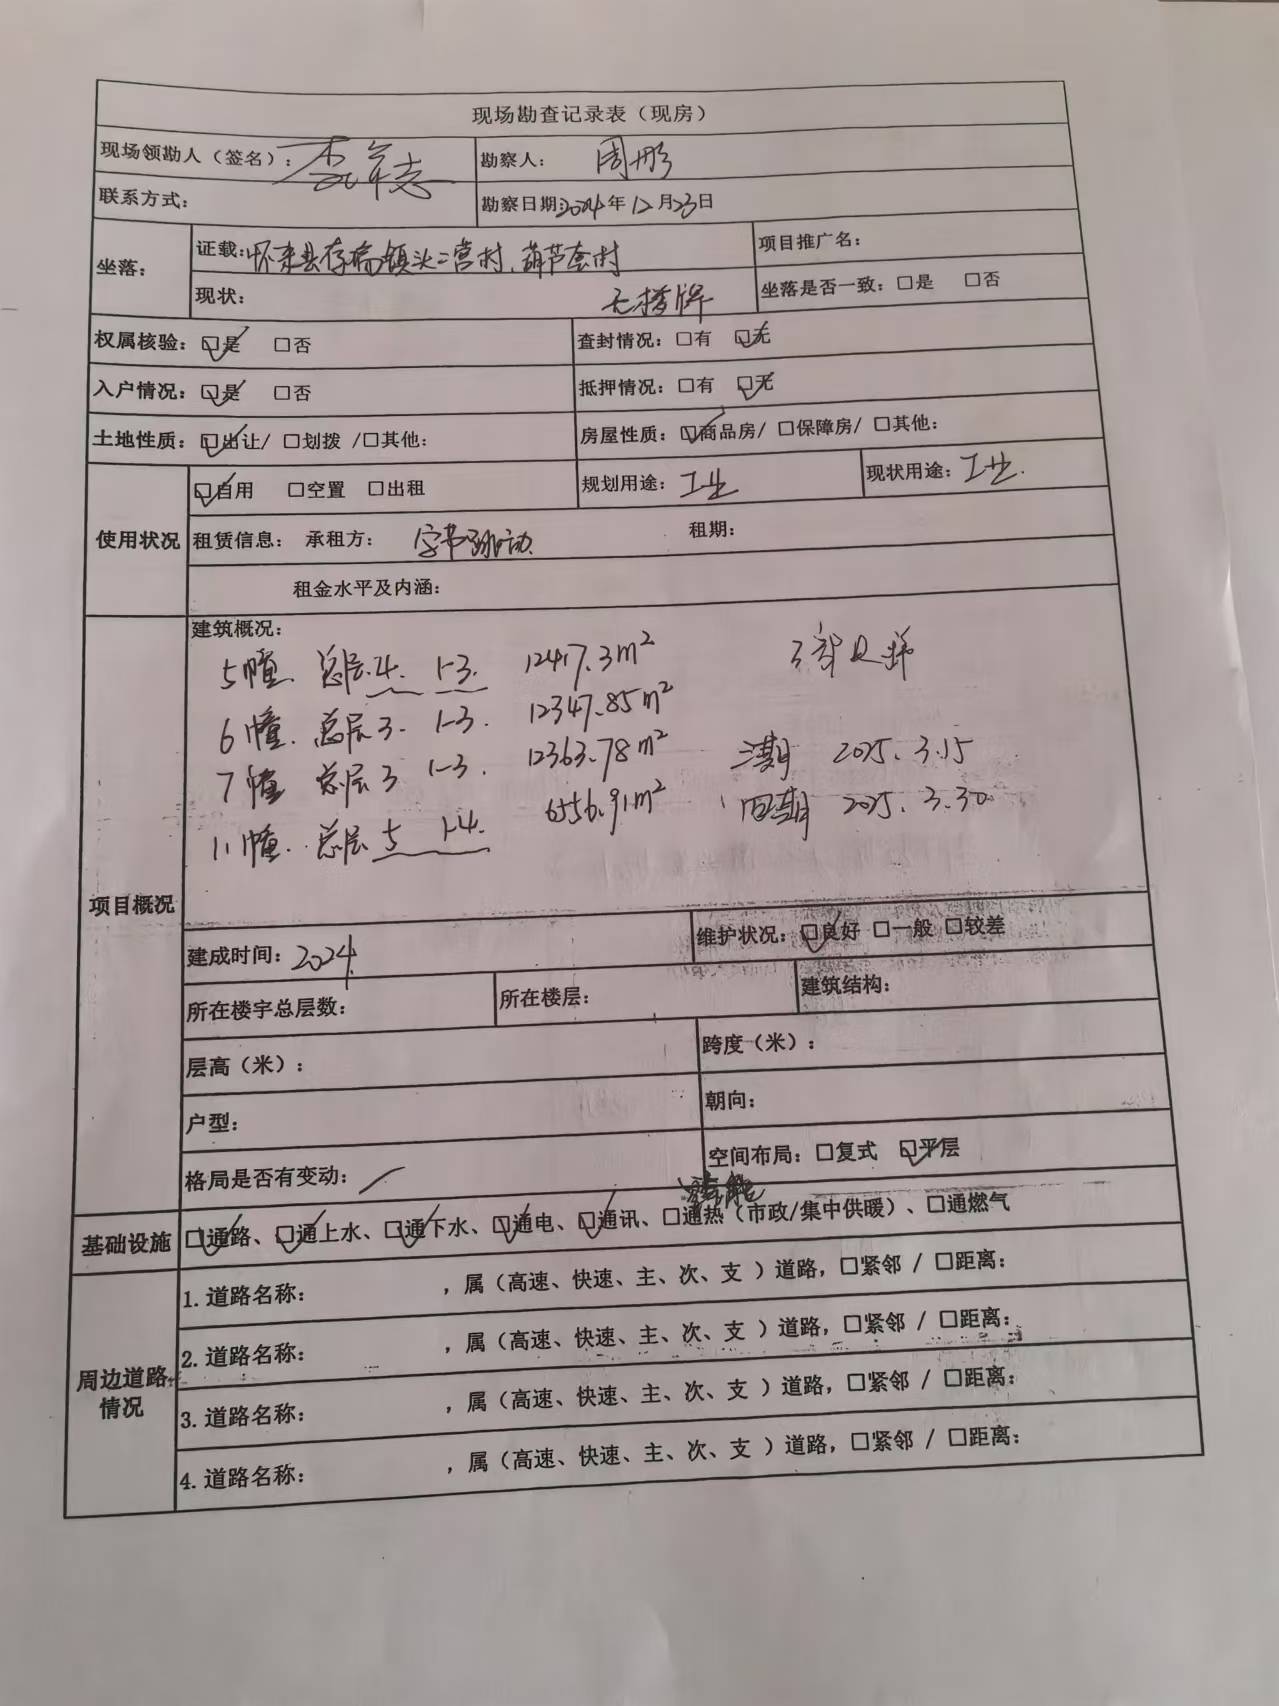 现场勘查记录表（现房）
现场领勘人（签名）：
勘察人： 周彤
联系方式：
勘察日期：2024年12月23日
坐落：
证载：怀来县存瑞镇头二营村、葫芦套村
项目推广名：
现状： 无楼牌
坐落是否一致：□是 □否
权属核验：☑是 □否
查封情况：□有 ☑无
入户情况：☑是 □否
抵押情况：□有 ☑无
土地性质：☑出让/ □划拨 /□其他：
房屋性质：☑商品房/ □保障房/ □其他：
使用状况
☑自用 □空置 □出租
规划用途：工业
现状用途：工业.
租赁信息： 承租方： 字节跳动
租期：
租金水平及内涵：
项目概况
建筑概况：
5幢. 总层4. 1-3. 12417.3m²
6幢. 总层3. 1-3. 12347.85m²
7幢 总层3 1-3. 12363.78m²
三期 2025.3.15
11幢. 总层5 1-4. 6556.91m²
四期 2025.3.30
建成时间：2024
维护状况：☑良好 □一般 □较差
所在楼宇总层数：
所在楼层：
建筑结构：
层高（米）：
跨度（米）：
户型：
朝向：
格局是否有变动： /
空间布局：□复式 ☑平层
基础设施
☑通路、☑通上水、☑通下水、☑通电、☑通讯、□通热（市政/集中供暖）、□通燃气
周边道路情况
1. 道路名称： ，属（高速、快速、主、次、支 ）道路，□紧邻 / □距离：
2. 道路名称： ，属（高速、快速、主、次、支 ）道路，□紧邻 / □距离：
3. 道路名称： ，属（高速、快速、主、次、支 ）道路，□紧邻 / □距离：
4. 道路名称： ，属（高速、快速、主、次、支 ）道路，□紧邻 / □距离：